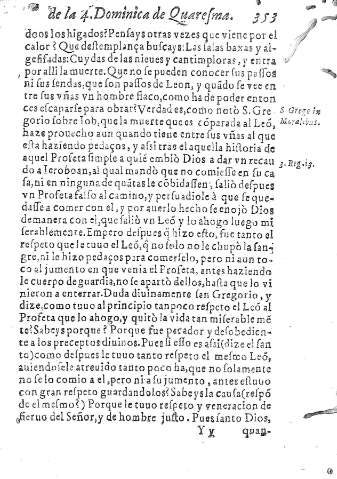 de la 4. Dominica de Quaresma. 353
doos los higados? Pensays otras vezes que viene por el
calor? Que destemplança buscays: Las salas baxas y al-
gesisadas: Cuydas de las nieues y cantimploras, y entra
por alli la muerte. Que no se pueden conocer sus passos
ni sus sendas, que son passos de Leon, y quãdo se vee en
tre sus vñas vn hombre flaco, como ha de poder enton
ces escaparse para obrar? Verdad es, como notò S. Gre-
gorio sobre Iob, que la muerte que es cõparada al Leõ,
haze prouecho aun quando tiene entre sus vñas al que
esta haziendo pedaços, y assi tras el aquella historia de
aquel Profeta simple a quiē embiò Dios a dar vn recau
do a Ieroboan, al qual mandò que no comiesse en su ca
sa, ni en ninguna de quãtas le cõbidassen, saliò despues
vn Profeta falso al camino, y persuadiole à que se que-
dasse a comer con el, y por auerlo hecho se enojò Dios
demanera con el, que saliò vn Leõ y lo ahogo luego mi
serablemente. Empero despues q̃ hizo esto, fue tanto el
respeto que le tuuo el Leõ, q̃ no solo no le chupò la san-
gre, ni le hizo pedaços para comerselo, pero ni aun to-
co al jumento en que venia el Profeta, antes haziendo
le cuerpo de guardia, no se apartò dellos, hasta que lo vi
nieron a enterrar. Duda diuinamente san Gregorio, y
dize, como tuuo al principio tan poco respeto el Leõ al
Profeta que lo ahogo, y quitò la vida tan miserable mē
te? Sabeys porque? Porque fue pecador y desobedien-
te a los preceptos diuinos. Pues si esso es assi (dize el san
to) como despues le tuuo tanto respeto el mesmo Leõ,
auiendosele atreuido tanto poco ha, que no solamente
no se lo comio a el, pero ni a su jumento, antes estuuo
con gran respeto guardandolos? Sabeys la causa (respõ
de el mesmo?) Porque le tuuo respeto y veneracion de
sieruo del Señor, y de hombre justo. Pues santo Dios,
Y y quan-
S. Grego in
Moralibus.
3. Reg. 13.